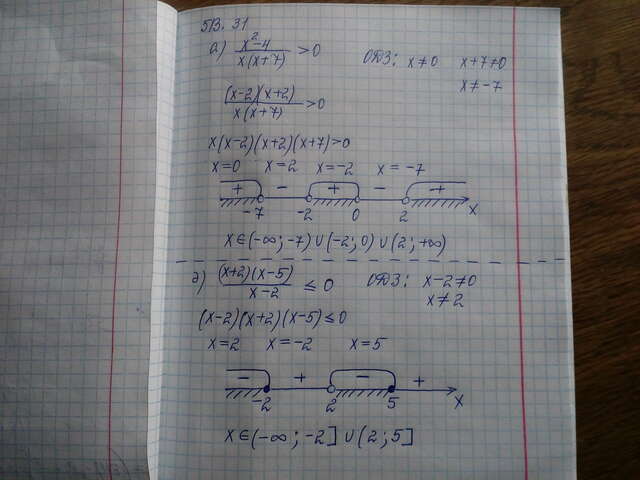 5В. 31
а) (x²-4)/(x(x+7)) >0 ОДЗ: x≠0 x+7≠0
x≠-7
((x-2)(x+2))/(x(x+7)) >0
x(x-2)(x+2)(x+7)>0
x=0 x=2 x=-2 x=-7
+ - + - +
-7 -2 0 2 x
x∈(-∞;-7)∪(-2;0)∪(2;+∞)
д) ((x+2)(x-5))/(x-2) ≤ 0 ОДЗ: x-2≠0
x≠2
(x-2)(x+2)(x-5)≤0
x=2 x=-2 x=5
- + - +
-2 2 5 x
x∈(-∞;-2]∪(2;5]